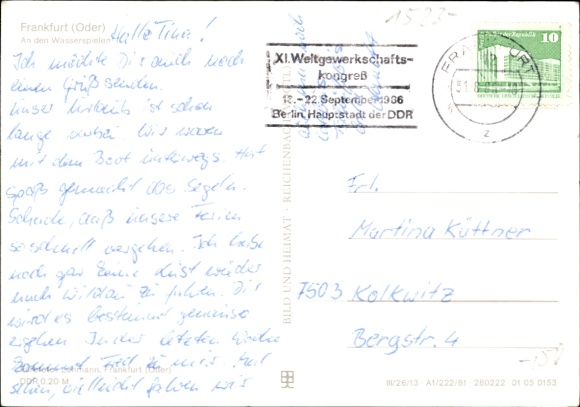 1583-
Frankfurt (Oder)
An den Wasserspielen
Hallo Tina!
Ich möchte Dir auch noch
einen Gruß senden.
Unser Urlaub ist schon
lange vorbei. Wir waren
mit dem Boot unterwegs. Hat
spaß gemacht das Segeln.
Schade, daß unsere Ferien
so schnell vergehen. Ich habe
noch gar keine Lust wieder
nach Wildau zu fahren. Dir
wird es bestimmt genauso
ergehen. In der letzten Woche
kommt Fred zu mir. Mal
sehen, vielleicht fahren wir
Frankfurt (Oder)
DDR 0,20 M
XI. Weltgewerkschafts-
kongreß
16.-22. September 1986
Berlin, Hauptstadt der DDR
FRANKFURT
2
10
BILD UND HEIMAT · REICHENBACH
Frl.
Martina Küttner
7503 Kolkwitz
Bergstr. 4
-,50
III/26/13 · A1/222/81 · 280222 01 05 0153